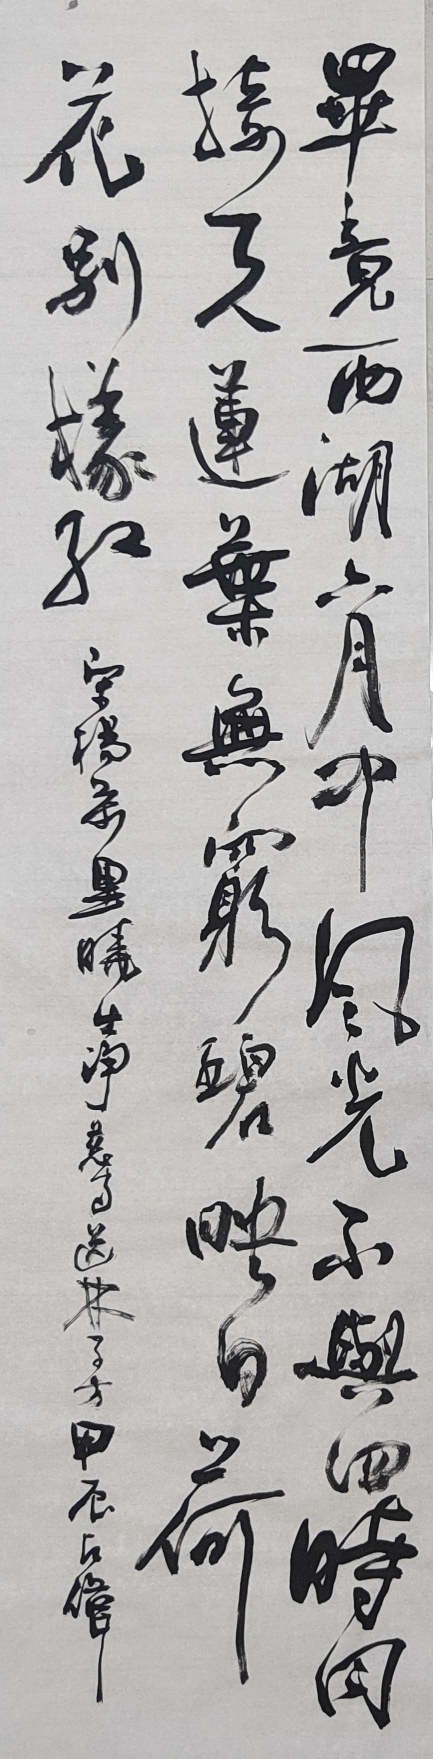 畢竟西湖六月中風光不與四時同
接天蓮葉無窮碧映日荷
花別樣紅
宋楊万里曉出淨慈寺送林子方甲辰占偉